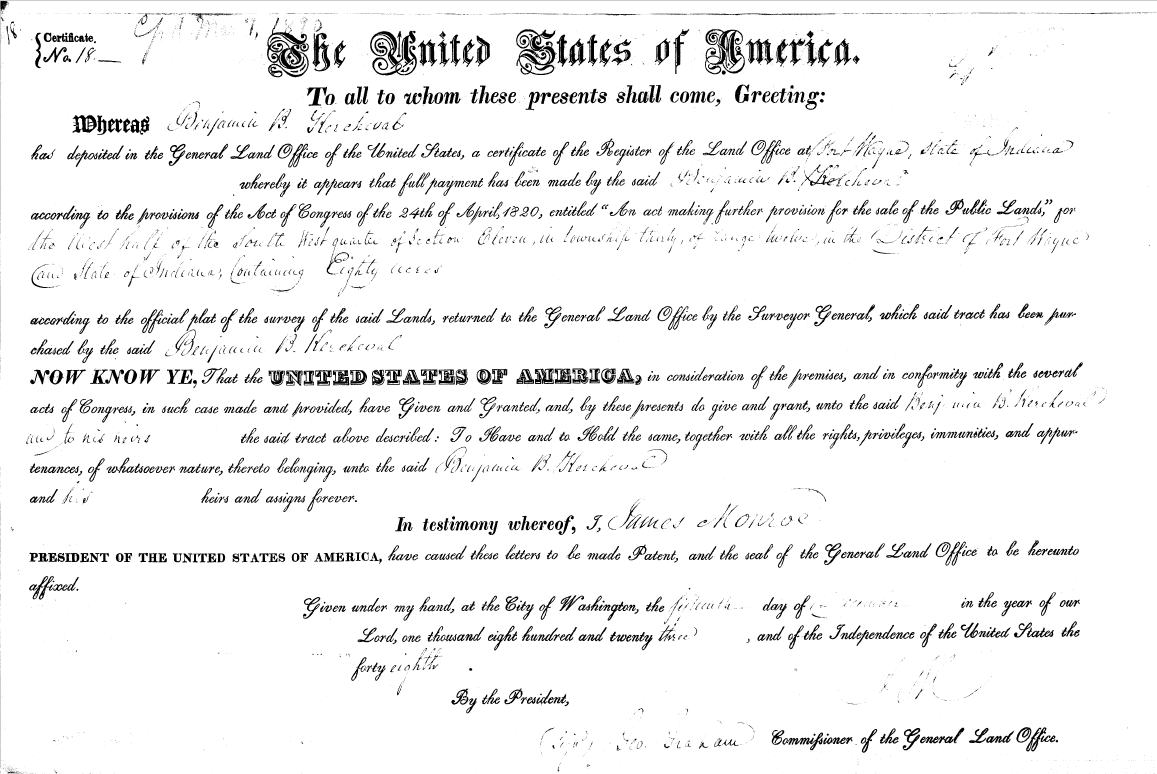 18
Certificate.
No. 18.
The United States of America.
To all to whom these presents shall come, Greeting:
Whereas Benjamin B. Kercheval
has deposited in the General Land Office of the United States, a certificate of the Register of the Land Office at Fort Wayne, State of Indiana
whereby it appears that full payment has been made by the said Benjamin B. Kercheval
according to the provisions of the Act of Congress of the 24th of April, 1820, entitled "An act making further provision for the sale of the Public Lands," for
the West half of the South West quarter of Section Eleven, in township thirty, of range twelve, in the District of Fort Wayne
and State of Indiana; Containing Eighty acres
according to the official plat of the survey of the said Lands, returned to the General Land Office by the Surveyor General, which said tract has been pur-
chased by the said Benjamin B. Kercheval
NOW KNOW YE, That the UNITED STATES OF AMERICA, in consideration of the premises, and in conformity with the several
acts of Congress, in such case made and provided, have Given and Granted, and, by these presents do give and grant, unto the said Benjamin B. Kercheval
and to his heirs the said tract above described: To Have and to Hold the same, together with all the rights, privileges, immunities, and appur-
tenances, of whatsoever nature, thereto belonging, unto the said Benjamin B. Kercheval
and his heirs and assigns forever.
In testimony whereof, I, James Monroe
PRESIDENT OF THE UNITED STATES OF AMERICA, have caused these letters to be made Patent, and the seal of the General Land Office to be hereunto
affixed.
Given under my hand, at the City of Washington, the day of in the year of our
Lord, one thousand eight hundred and twenty three, and of the Independence of the United States the
forty eighth.
By the President,
Geo. Graham Commissioner of the General Land Office.